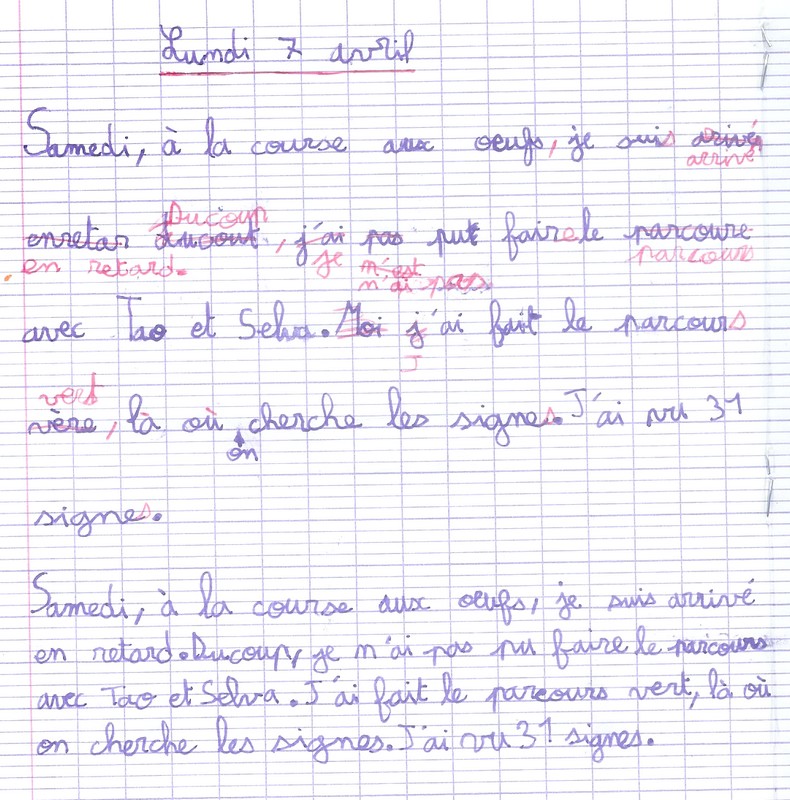 Lundi 7 avril
Samedi, à la course aux oeufs, je suis arivé
arrivé
Ducoup
enretar , j'ai pas put faire le parcoure
en retard. je n'est parcours
n'ai pas
avec Tao et Selva. Moi j'ai fait le parcours
J
vert
vère, là où cherche les signes. J'ai vu 31
on
signes.
Samedi, à la course aux oeufs, je suis arrivé
en retard. Ducoup, je n'ai pas pu faire le parcours
avec Tao et Selva. J'ai fait le parcours vert, là où
on cherche les signes. J'ai vu 31 signes.